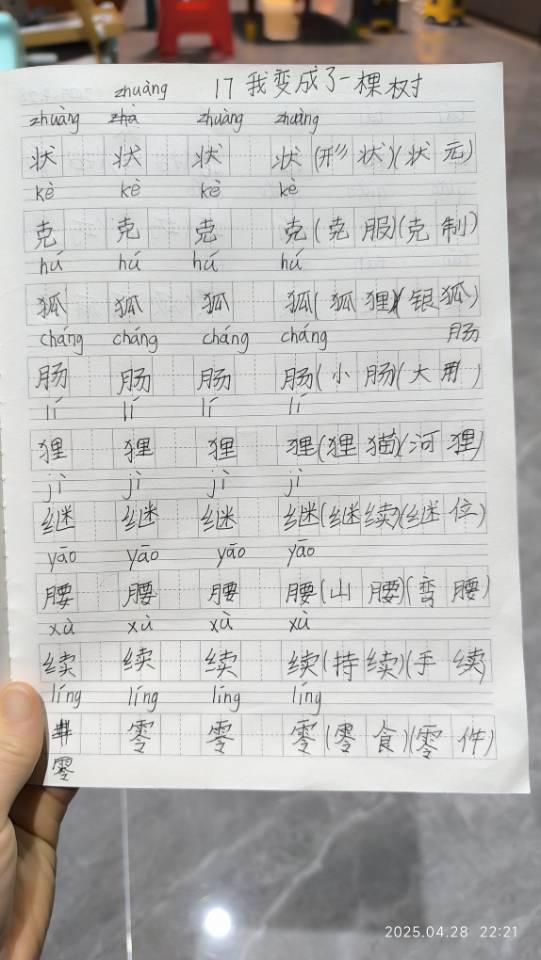 17 我变成了一棵树
zhuàng
zhuàng zhà zhuàng zhuàng
状 状 状 状(形状)(状元)
kè kè kè kè
克 克 克 克(克服)(克制)
hú hú hú hú
狐 狐 狐 狐(狐狸)(银狐)
cháng cháng cháng cháng 肠
肠 肠 肠 肠(小肠)(大)
lí lí lí lí
狸 狸 狸 狸(狸猫)(河狸)
jì jì jì jì
继 继 继 继(继续)(继位)
yāo yāo yāo yāo
腰 腰 腰 腰(山腰)(弯腰)
xù xù xù xù
续 续 续 续(持续)(手续)
líng líng líng líng
零 零 零(零食)(零件)
零
2025.04.28 22:21